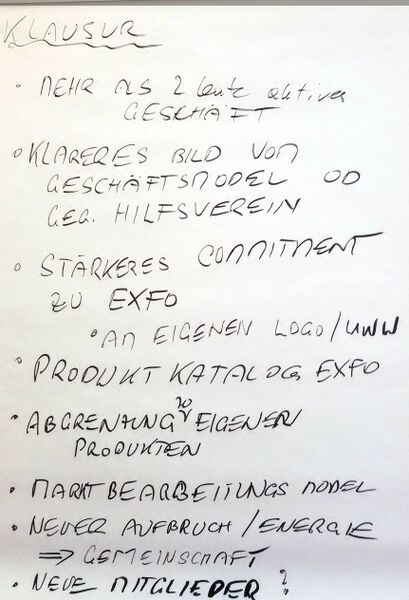 KLAUSUR
• MEHR ALS 2 Leute aktiver
GESCHÄFT
• KLARERES BILD VOM
GESCHÄFTSMODEL OD
GEG. HILFSVEREIN
• STÄRKERES COMMITMENT
ZU EXFO
• AN EIGENEN LOGO/WWW
• PRODUKT KATALOG EXFO
• ABGRENZUNG ZU EIGENEN
PRODUKTEN
• MARKTBEARBEITUNGS MODEL
• NEUER AUFBRUCH / ENERGIE
⇒ GEMEINSCHAFT
• NEUE MITGLIEDER ?